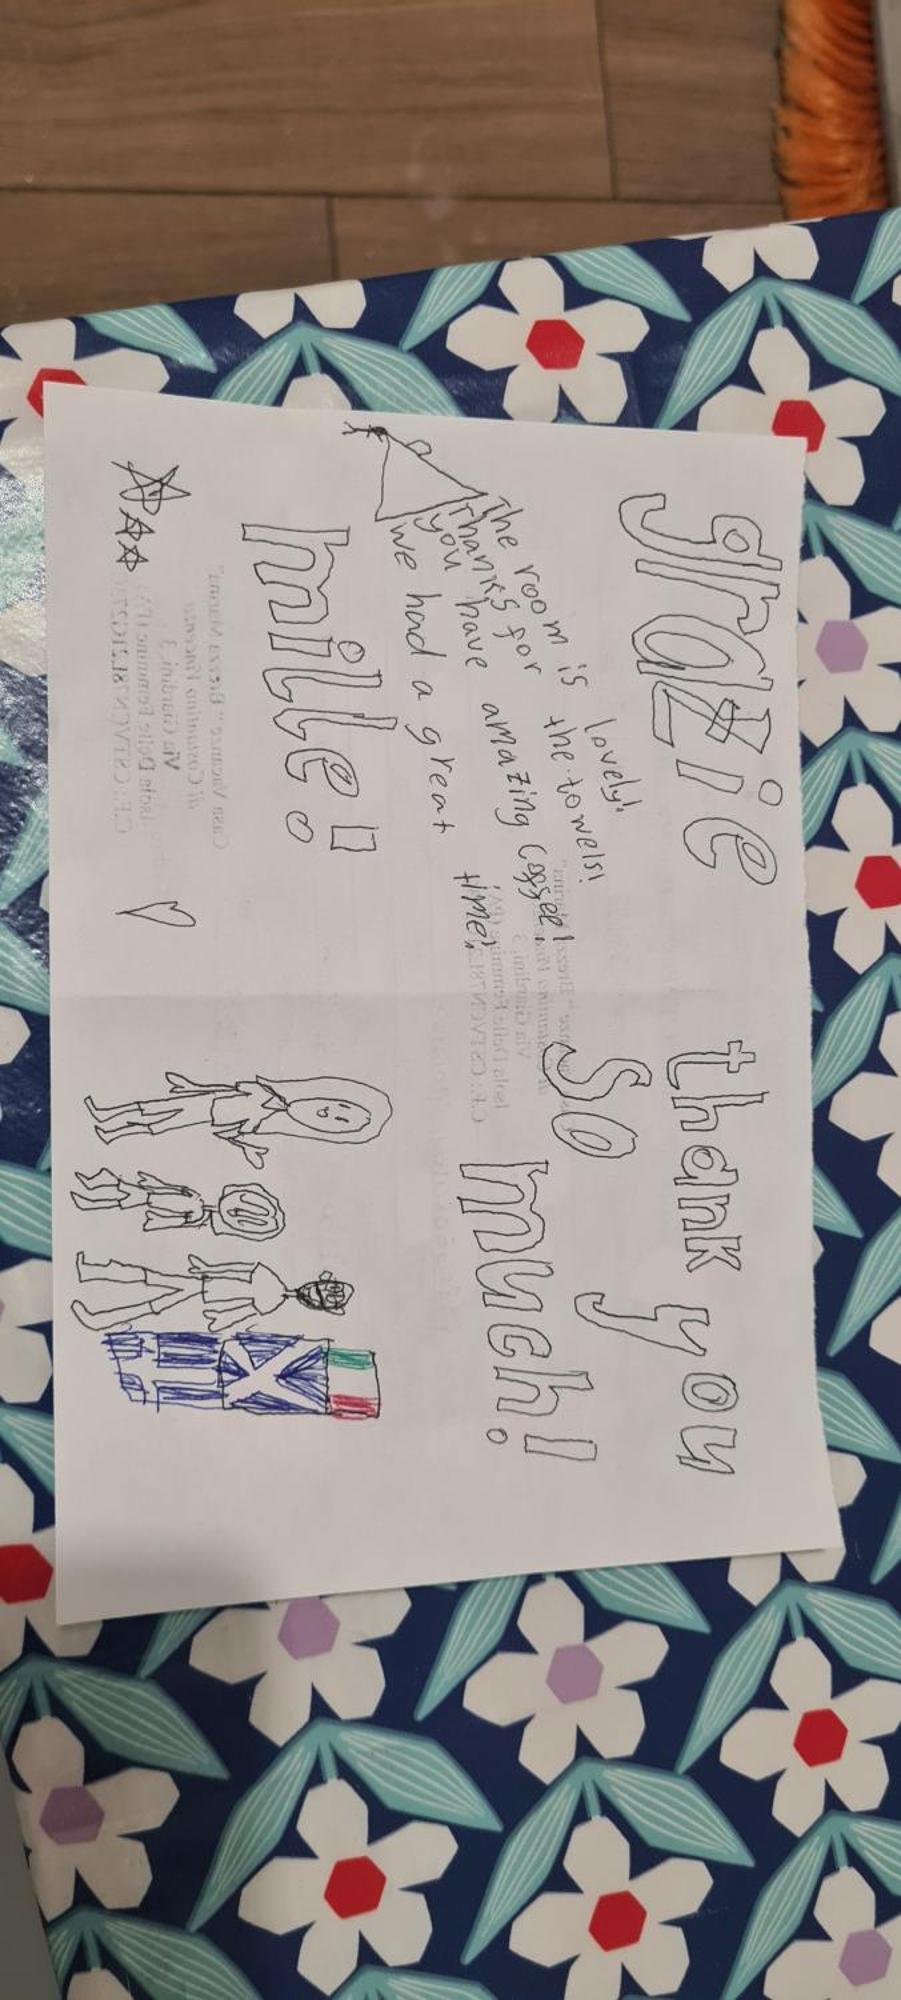 grazie
the room is lovely!
thanks for the towels!
you have amazing coffee!
we had a great time!
mille!
thank you
so much!